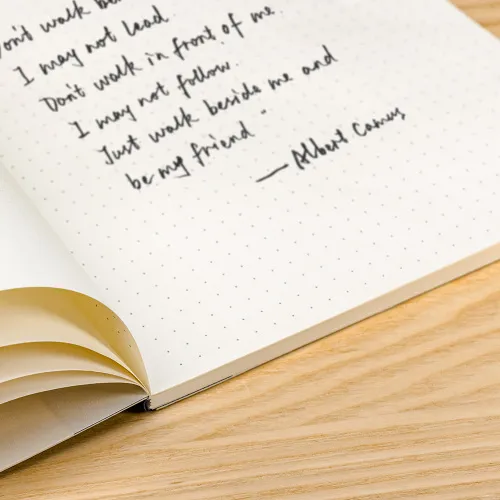 Don't walk be
I may not lead.
Don't walk in front of me
I may not follow.
Just walk beside me and
be my friend "
— Albert Camus